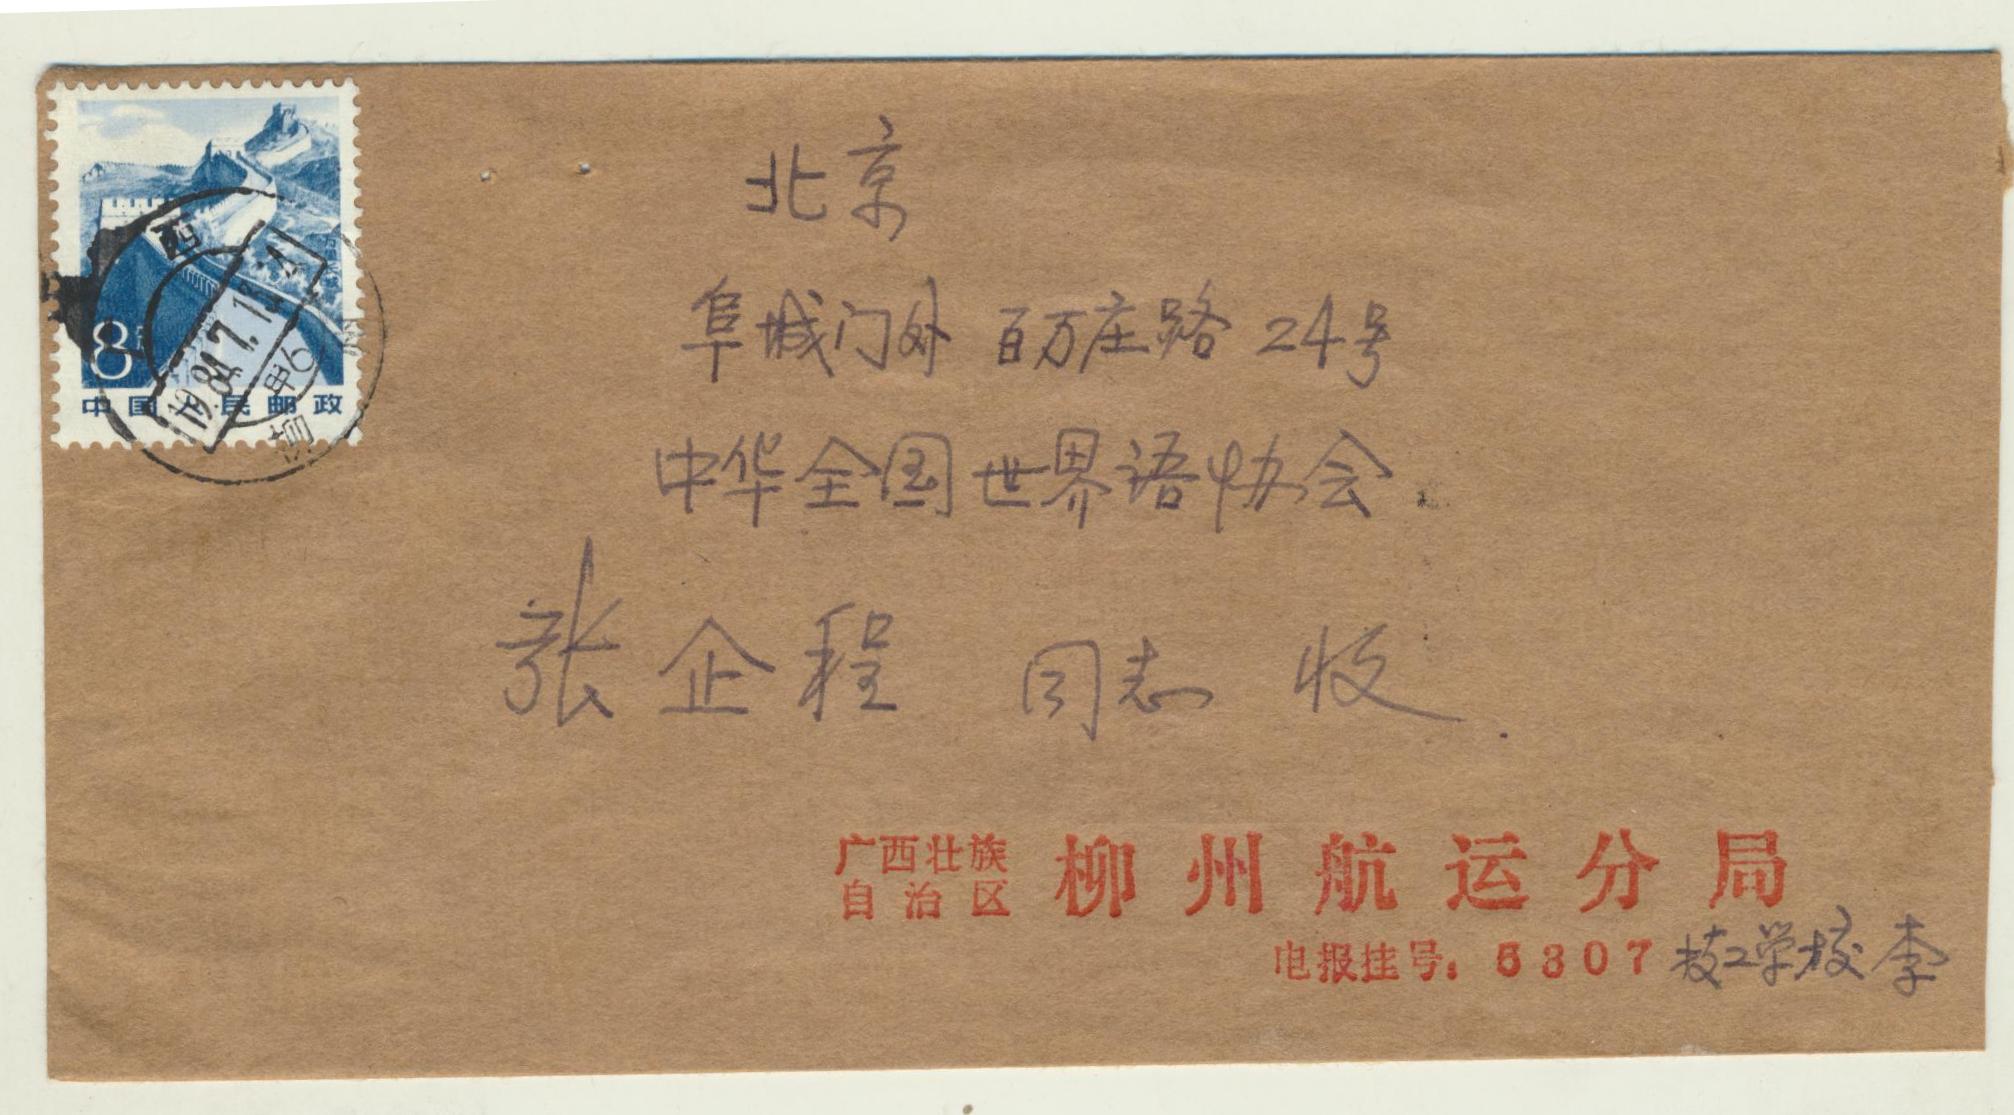 8分
中国人民邮政
西
1984.7.1
北京
阜城门外 百万庄路 24号
中华全国世界语协会
张企程 同志 收
广西壮族
自治区 柳州航运分局
电报挂号：5307 技工学校 李